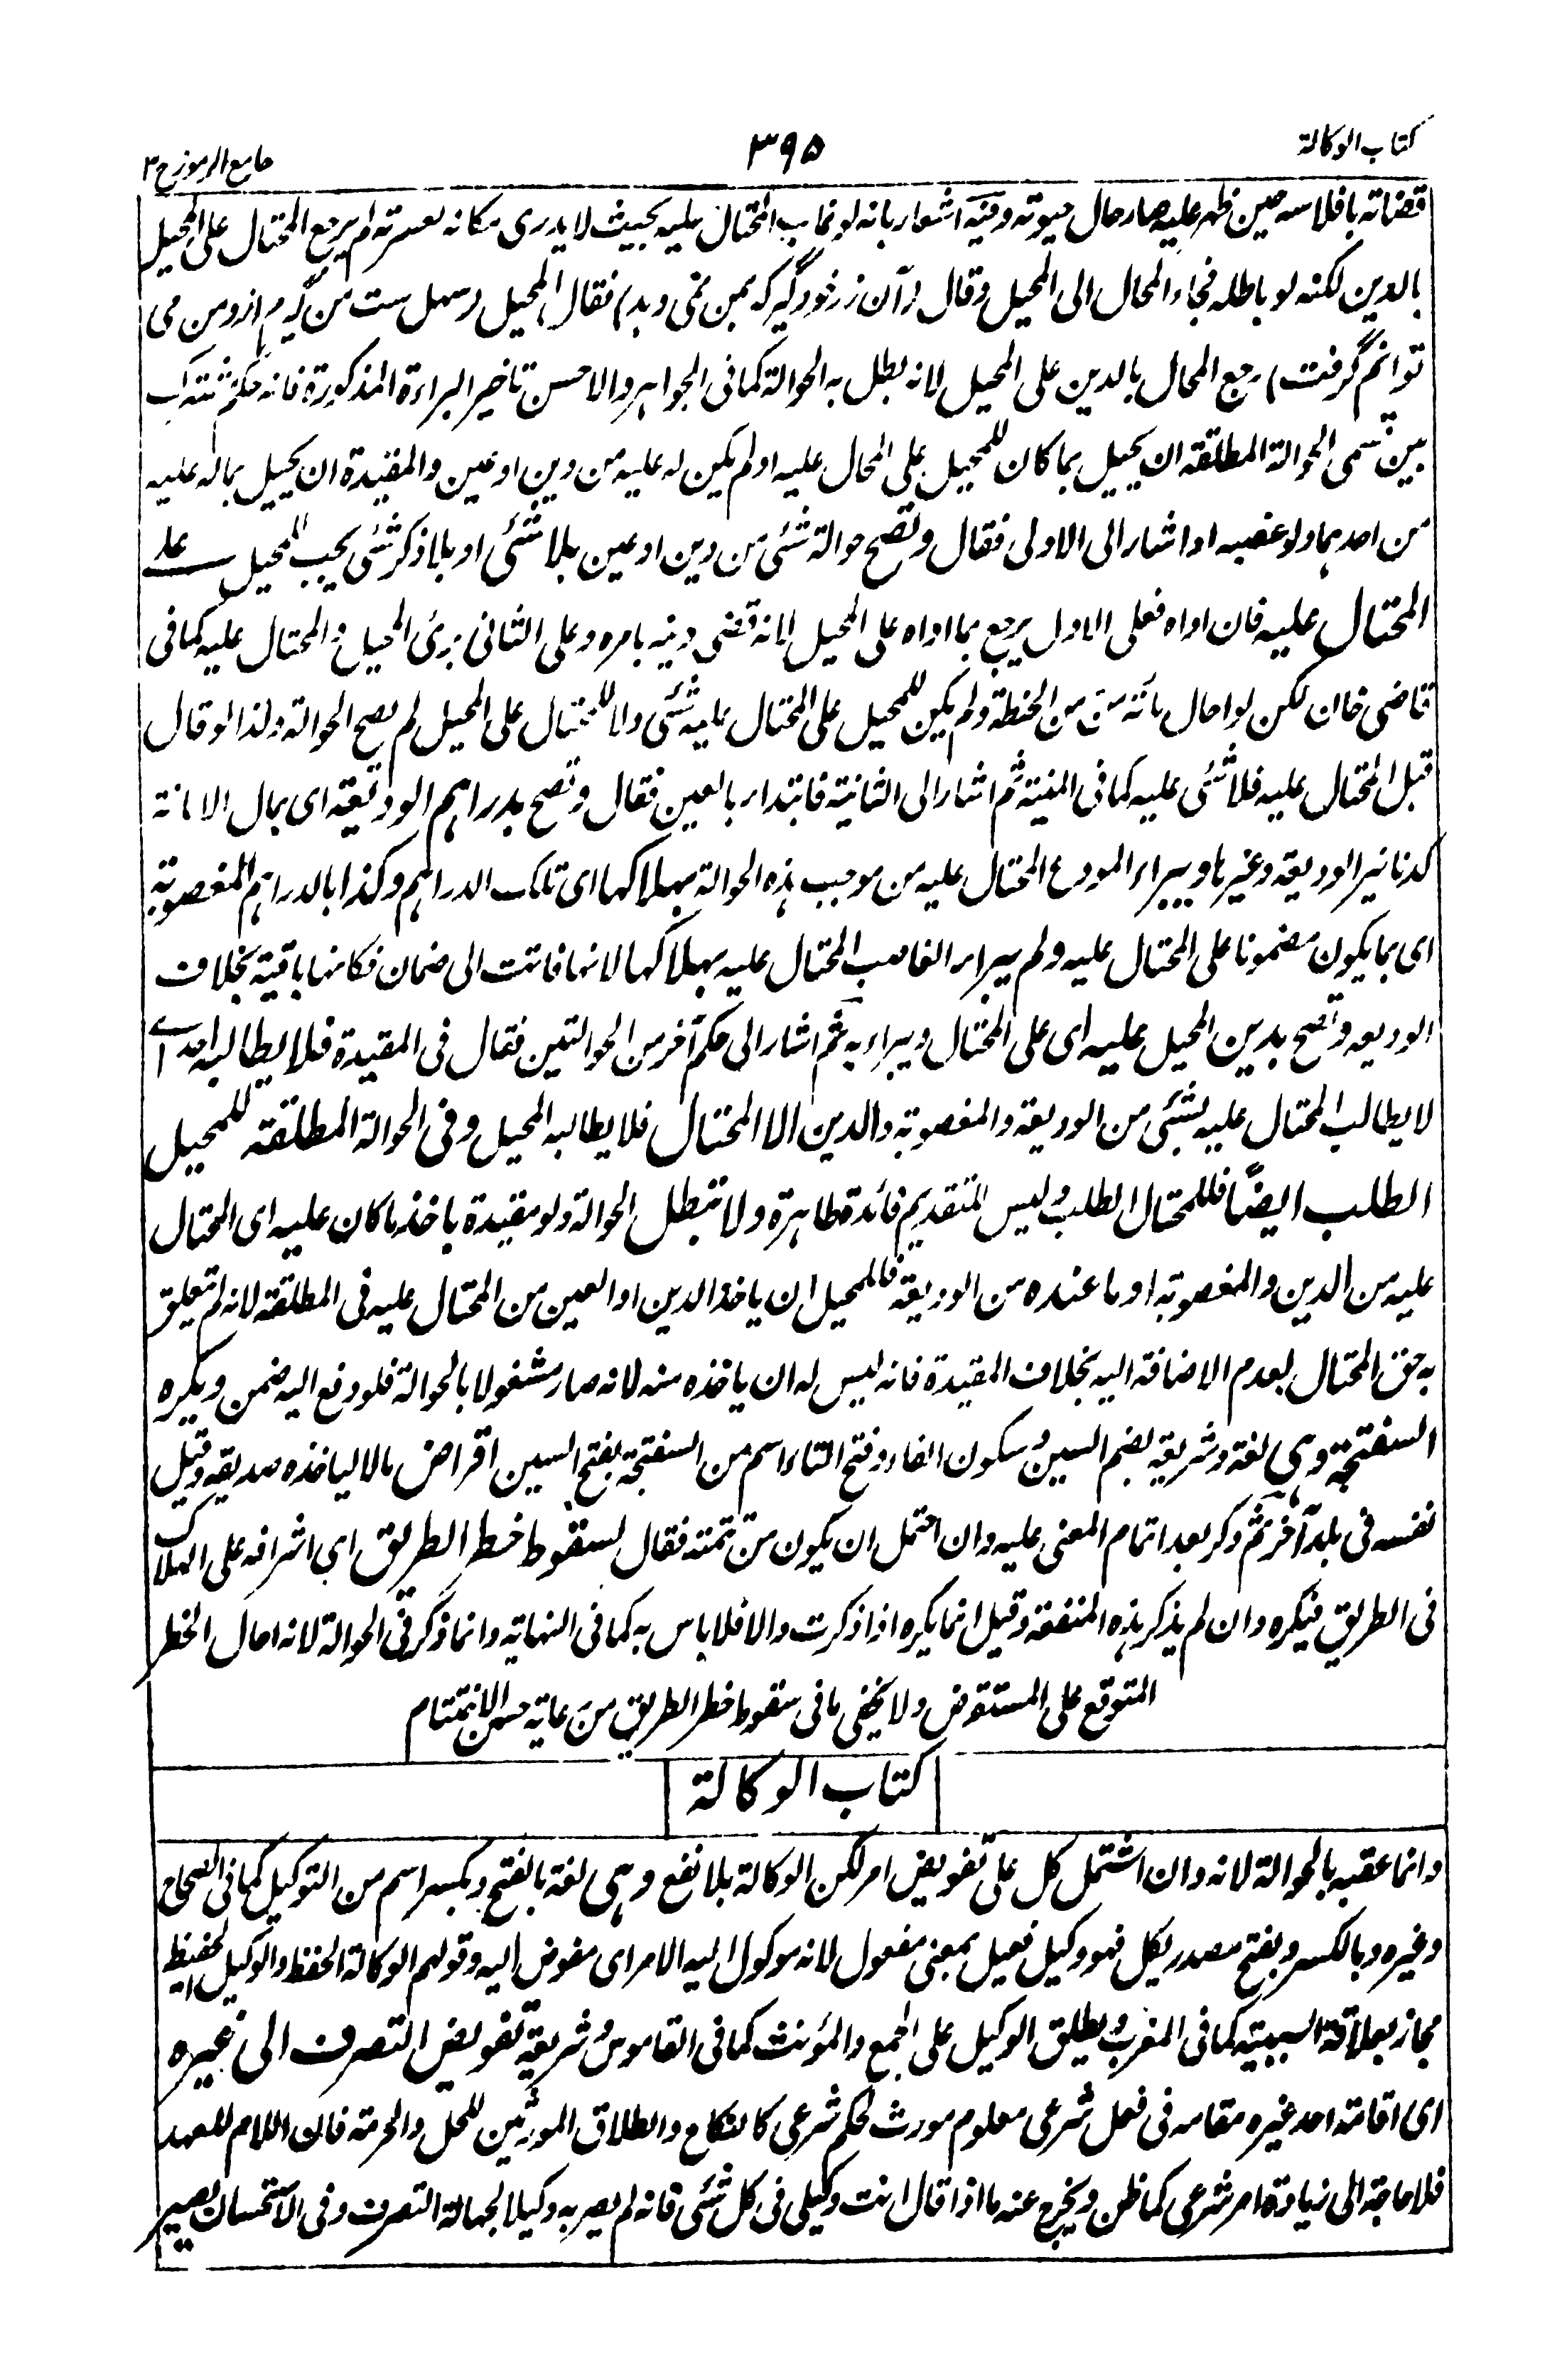 كتاب الوكالة
٣٩٥
جامع الرموز ج ٣
قضاته بافلاسه حين ظهر عليه صار حال حيوته وفيه اشعار بانه لو غاب المحتال عليه بحيث لا يدرى مكانه لعسرته لم يرجع المحتال على المحيل
بالدين لكنه لو باطله فجاء المحال الى المحيل وقال (آن زر خود گير كه بمن نمى دهد) فقال المحيل (سهل ست من گيرم ازو من مى
توانم گرفت) رجع المحال بالدين على المحيل لانه بطل به الحوالة كما فى الجواهر والاحسن تاخير البراءة المذكورة فانه حكم مشترك
بين قسمى الحوالة المطلقة ان يحيل بما كان للمحيل على المحال عليه او لم يكن له عليه من دين او عين والمقيدة ان يحيل بماله عليه
من احدهما ولو غصبه اد اشار الى الاولى فقال وتصح حوالة شئى من دين او عين بلا شئى او بلا ذكر شئى يجب للمحيل على
المحتال عليه فان اداه فعلى الاول يرجع بما اداه على المحيل لانه قضى دينه بامره وعلى الثانى برئ المحيل والمحتال عليه كما فى
قاضى خان لكن لو احال مائة من من الحنطة ولم يكن للمحيل على المحتال عليه شئى ولا للمحتال على المحيل لم يصح الحوالة ولذا لو قال
قبل المحتال عليه فلا شئى عليه كما فى المنية ثم اشار الى الثانية فابتداء بالعين فقال وتصح بدراهم الوديعة اى بمال الامانة
كدنانير الوديعة وغيرها ويبراء المودع المحتال عليه من موجب هذه الحوالة بهلاكها اى تلك الدراهم وكذا بالدراهم المغصوبة
اى بما يكون مضمونا على المحتال عليه ولم يبراء الغاصب المحتال عليه بهلاكها لانها فاتت الى ضمان فكانها باقية بخلاف
الوديعه وتصح بدين المحيل عليه اى على المحتال ويبراء به ثم اشار الى حكم آخر من الحوالتين فقال فى المقيدة فلا يطالبه احد اى
لا يطالب المحتال عليه بشئى من الوديعة والمغصوبة والدين الا المحتال فلا يطالبه المحيل وفى الحوالة المطلقة للمحيل
الطلب ايضًا فللمحتال الطلب وليس لتقديم فائدة ظاهرة ولا تبطل الحوالة ولو مقيدة باخذ ما كان عليه اى المحتال
عليه من الدين والمغصوبة او ما عنده من الوديعة فللمحيل ان ياخذ الدين او العين من المحتال عليه فى المطلقة لانه لم تعلق
به حق المحتال لعدم الاضافة اليه بخلاف المقيدة فانه ليس له ان ياخذه منه لانه صار مشغولا بالحوالة فلو دفع اليه ضمن ويكره
السفتجة وهى لغة وشريعة بضم السين وسكون الفاء وفتح التاء اسم من السفتجة بفتح السين اقراض مالا لياخذه صديقه وقيل
نفسه فى بلد آخر ثم ذكر بعد اتمام المعنى عليه وان احتمل ان يكون من تتمته فقال لسقوط خطر الطريق اى اشرافه على الهلاك
فى الطريق فيكره وان لم يذكر هذه المنفعة وقيل انما يكره اذا ذكرت والا فلا باس به كما فى النهاية وانما ذكر فى الحوالة لانه احال الخطر
المتوقع على المستقرض ولا يخفى ما فى سقوط خطر الطريق من رعاية حسن الاختتام
كتاب الوكالة
وانما عقبه بالحوالة لانه وان اشتمل كل على تفويض امر لكن الوكالة بلا نفع وهى لغة بالفتح ويكسر اسم من التوكيل كما فى الصحاح
وغيره وبالكسر وبفتح مصدر يكل فهو وكيل فعيل بمعنى مفعول لانه موكول اليه الامر اى مفوض اليه وقولهم الوكالة الحفظ والوكيل الحفيظ
مجاز بعلاقة السببية كما فى المغرب ويطلق الوكيل على الجمع والمؤنث كما فى القاموس وشريعة تفويض التصرف الى غيره
اى اقامة احد غيره مقامه فى فعل شرعى معلوم مورث لحكم شرعى كالنكاح والطلاق المورثين للحل والحرمة فان اللام للعهد
فلا حاجة الى زيادة امر شرعى كما ظن ويخرج عنه ما اذا قال انت وكيلى فى كل شئى فانه لم يصر به وكيلا لجهالة التصرف وفى الاستحسان يصير